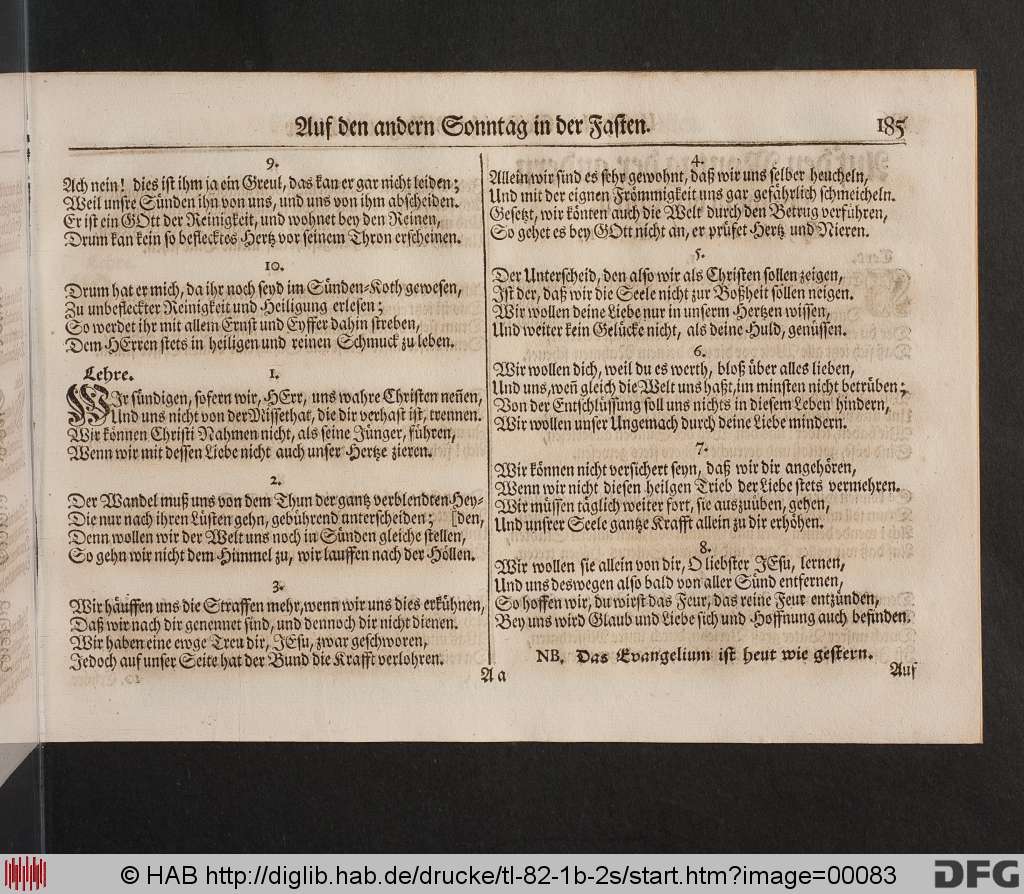 Auf den andern Sonntag in der Fasten.
185
9.
Ach nein! dies ist ihm ja ein Greul, das kan er gar nicht leiden;
Weil unsre Sünden ihn von uns, und uns von ihm abscheiden.
Er ist ein GOtt der Reinigkeit, und wohnet bey den Reinen,
Drum kan kein so beflecktes Hertz vor seinem Thron erscheinen.
10.
Drum hat er mich, da ihr noch seyd im Sünden-Koth gewesen,
Zu unbefleckter Reinigkeit und Heiligung erlesen;
So werdet ihr mit allem Ernst und Eyffer dahin streben,
Dem HErren stets in heiligen und reinen Schmuck zu leben.
Lehre. 1.
WIr sündigen, sofern wir, HErr, uns wahre Christen neñen,
Und uns nicht von der Missethat, die dir verhast ist, trennen.
Wir können Christi Nahmen nicht, als seine Jünger, führen,
Wenn wir mit dessen Liebe nicht auch unser Hertze zieren.
2.
Der Wandel muß uns von dem Thun der gantz verblendten Hey-
Die nur nach ihren Lüsten gehn, gebührend unterscheiden; [den,
Denn wollen wir der Welt uns noch in Sünden gleiche stellen,
So gehn wir nicht dem Himmel zu, wir lauffen nach der Höllen.
3.
Wir häuffen uns die Straffen mehr, wenn wir uns dies erkühnen,
Daß wir nach dir genennet sind, und dennoch dir nicht dienen.
Wir haben eine ewge Treu dir, JEsu, zwar geschworen,
Jedoch auf unser Seite hat der Bund die Krafft verlohren.
4.
Allein wir sind es sehr gewohnt, daß wir uns selber heucheln,
Und mit der eignen Frömmigkeit uns gar gefährlich schmeicheln.
Gesetzt, wir könten auch die Welt durch den Betrug verführen,
So gehet es bey GOtt nicht an, er prüfet Hertz und Nieren.
5.
Der Unterscheid, den also wir als Christen sollen zeigen,
Ist der, daß wir die Seele nicht zur Boßheit sollen neigen.
Wir wollen deine Liebe nur in unserm Hertzen wissen,
Und weiter kein Gelücke nicht, als deine Huld, genüssen.
6.
Wir wollen dich, weil du es werth, bloß über alles lieben,
Und uns, weñ gleich die Welt uns haßt, im minsten nicht betrüben;
Von der Entschlüssung soll uns nichts in diesem Leben hindern,
Wir wollen unser Ungemach durch deine Liebe mindern.
7.
Wir können nicht versichert seyn, daß wir dir angehören,
Wenn wir nicht diesen heilgen Trieb der Liebe stets vermehren.
Wir müssen täglich weiter fort, sie auszuüben, gehen,
Und unsrer Seele gantze Krafft allein zu dir erhöhen.
8.
Wir wollen sie allein von dir, O liebster JEsu, lernen,
Und uns deswegen also bald von aller Sünd entfernen,
So hoffen wir, du wirst das Feur, das reine Feur entzünden,
Bey uns wird Glaub und Liebe sich und Hoffnung auch befinden.
NB. Das Evangelium ist heut wie gestern.
A a
Auf
© HAB http://diglib.hab.de/drucke/tl-82-1b-2s/start.htm?image=00083
DFG